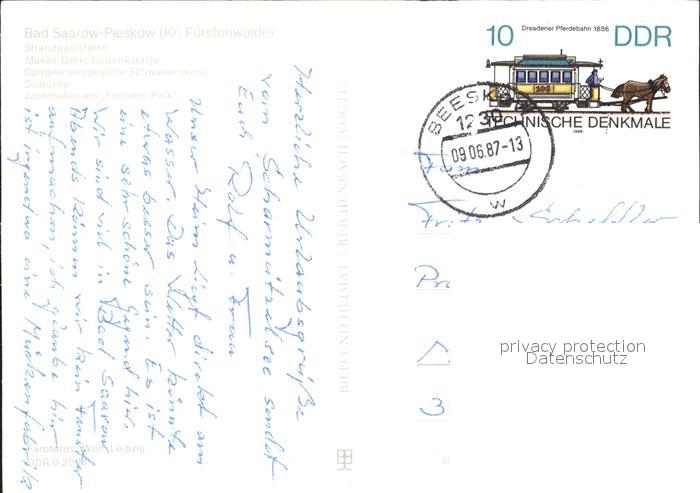 Bad Saarow-Pieskow (Kr. Fürstenwalde)
Strandgaststätte
Maxim-Gorki-Gedenkstätte
Dampferanlegestelle Schwanenwiese
Solquelle
Jachthafen am „Fontane-Park"
Herzliche Urlaubsgrüße
vom Scharmützelsee sendet
Euch Rolf u. Frau
Unser Heim liegt direkt am
Wasser. Das Wetter könnte
etwas besser sein. Es ist
eine sehr schöne Gegend hier.
Wir sind viel in Bad Saarow.
Abends können wir kein Fenster
aufmachen, ich glaube hier
ist irgendwo eine Mückenfabrik
Farbfotos: Wolf, Leipzig
DDR 0,20 M
BILD UND HEIMAT · REICHENBACH (VOGTL)
Dresdener Pferdebahn 1886
10 DDR
TECHNISCHE DENKMALE
1986
BEESK
1230
09.06.87-13
w
Fritz
privacy protection
Datenschutz